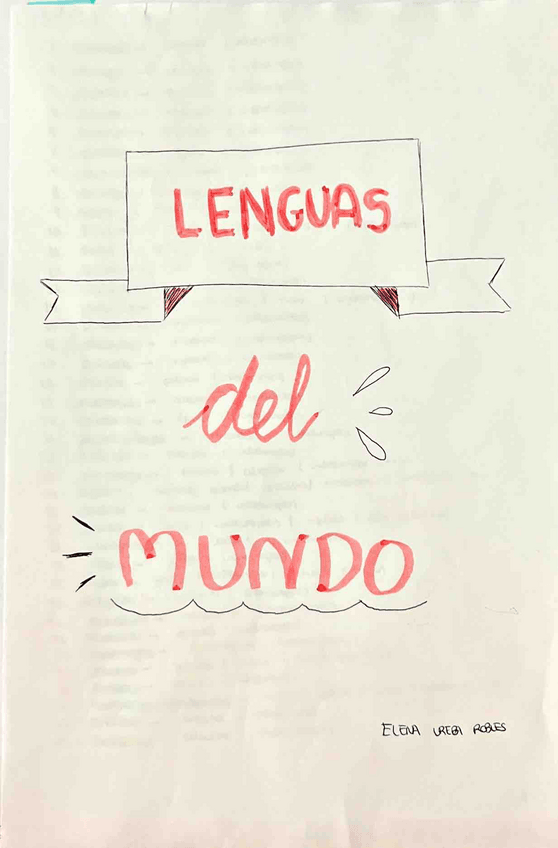 LENGUAS
del
MUNDO
ELENA UREBA ROBLES